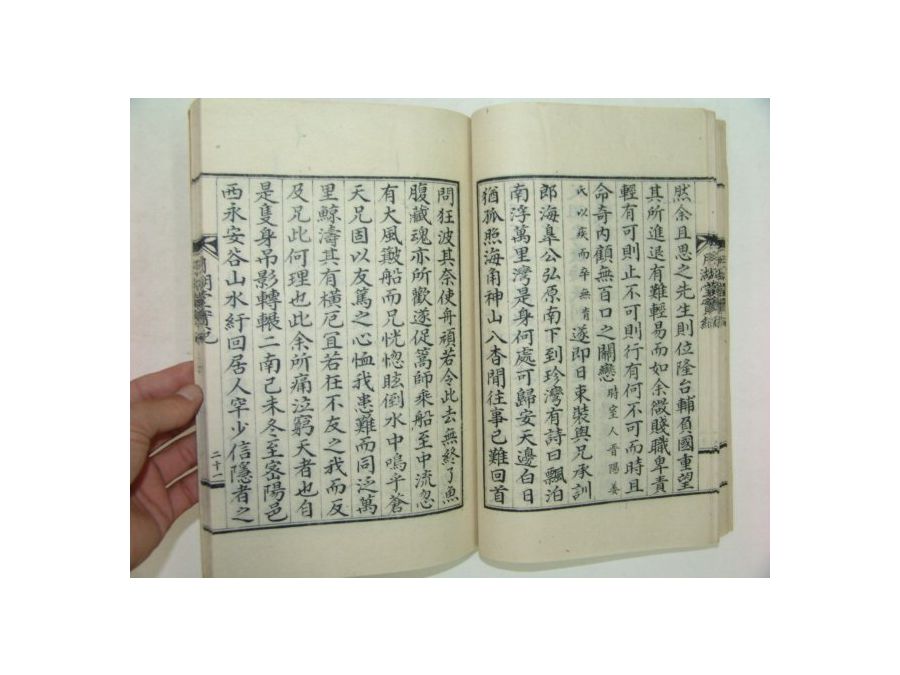 然余且思之先生則位隆台輔負國重望
其所進退有難輕易而如余微賤職卑責
輕有可則止不可則行有何不可而時且
命奇內顧無百口之關戀時室人晋陽姜
氏以疾而卒無育遂即日束裝與兄承訓
郎海皐公弘原南下到珍灣有詩曰飄泊
南浮萬里灣是身何處可歸安天邊白日
猶孤照海角神山八杳間往事已難回首
問狂波其奈使舟頑若令此去無終了魚
腹藏魂亦所歡遂促篙師乘船至中流忽
有大風皷船而兄恍惚眩倒水中嗚乎蒼
天兄固以友篤之心恤我患難而同泛萬
里鯨濤其有橫厄冝若在不友之我而反
及兄此何理也此余所痛泣窮天者也自
是隻身吊影轉輾二南己未冬至密陽邑
西永安谷山水紆回居人罕少信隱者之
二十二